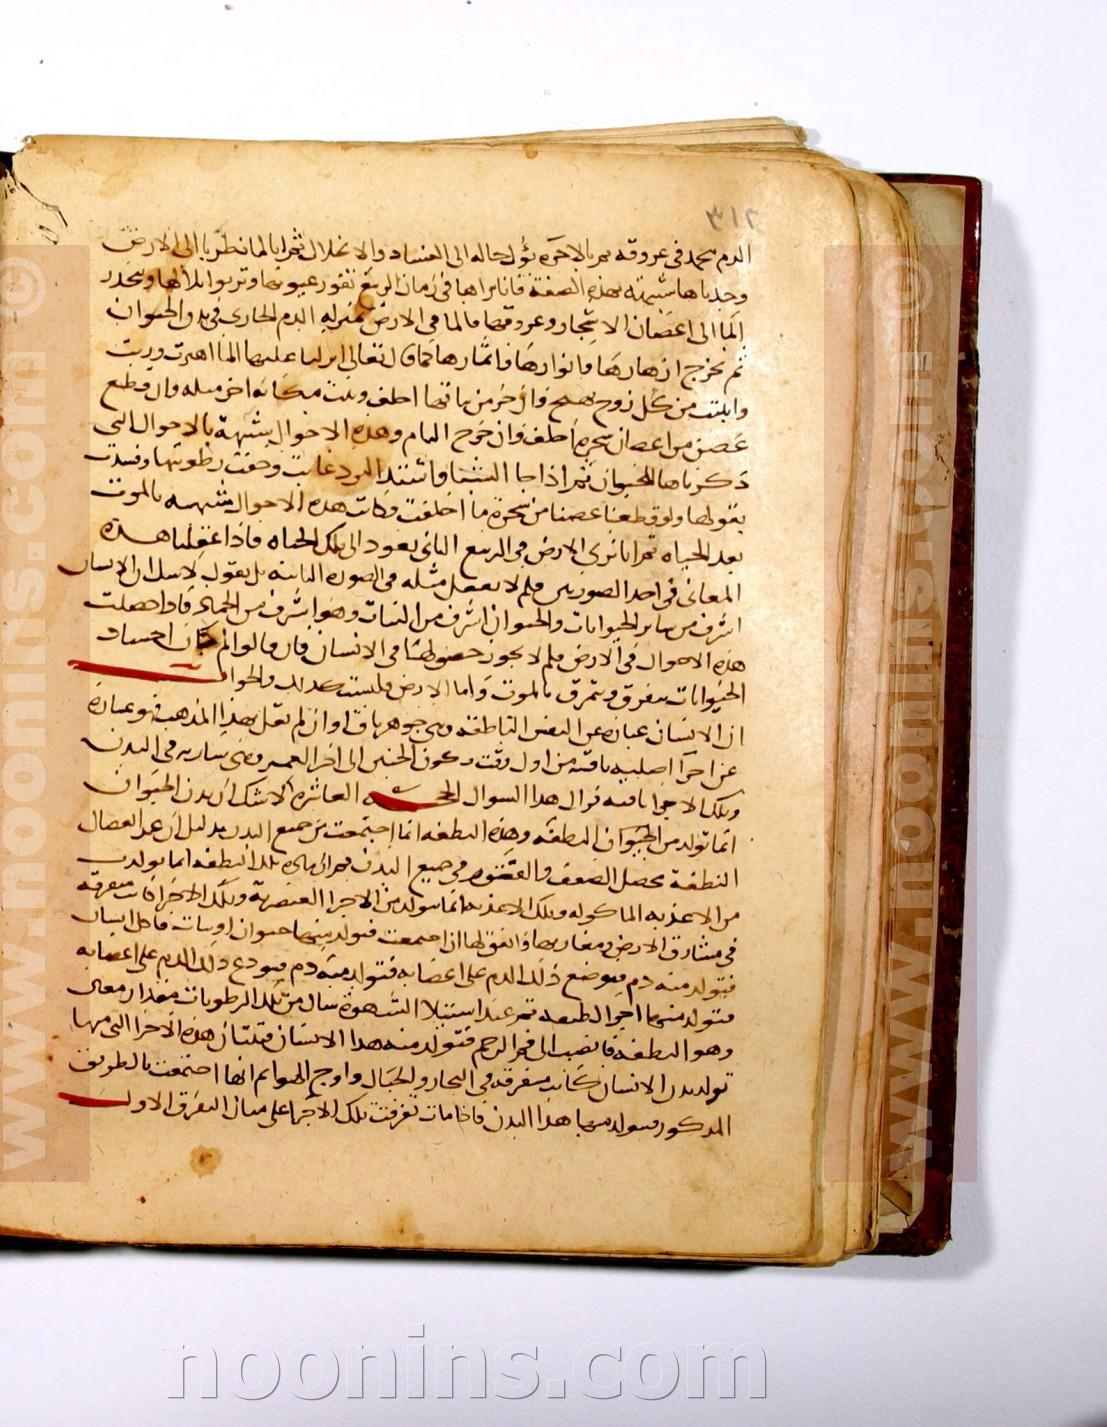 ٣١٦
الدم يجمد في عروقه ثم بالاخره يؤل حاله الى الفساد والانحلال ثم انا لما نظرنا الى الارض
وجدناها شبيهة بهذه الصفة فانا نراها في زمان الربيع تفور عيونها وتربوا تلالها وينجذر
الما الى اغصان الاشجار وعروقها فالما في الارض بمنزلة الدم الجارى في بدن الحيوان
ثم تخرج ازهارها وانوارها واثمارها كما قال تعالى انزلنا عليها الما اهتزت وربت
وانبتت من كل زوج بهيج وان جز من نباتها اخلف ونبت مكانه اخر مثله وان قطع
غصن من اغصان شجرة اخلف وان جرح التام وهذه الاحوال شبيهة بالاحوال التي
ذكرناها للحيوان ثم اذا جا الشتا واشتد البرد غابت وجفت رطوبتها وفسدت
بقولها ولو قطعنا غصنا من شجرة ما اخلفت وكانت هذه الاحوال شبيهه بالموت
بعد الحياه ثم انا نرى الارض في الربيع الثاني يعود الى تلك الحياه فاذا عقلنا هذه
المعاني في احد الصورتين فلم لا نعقل مثله في الصوره الثانيه بل نقول لا شك ان الانسان
اشرف من ساير الحيوانات والحيوان اشرف من النبات وهو اشرف من الجماد فاذا حصلت
هذه الاحوال في الارض فلم لا يجوز حصولها في الانسان فان قالوا لم كان اجساد
الحيوانات يتفرق ويتمزق بالموت واما الارض فليست كذلك والجواب
ان الانسان عبارة عن النفس الناطقة وهي جوهر باق او ان لم نقل بهذا المذهب فهو عبارة
عن اجزا اصليه باقية من اول وقت تكون الجنين الى اخر العمر وهي ساريه في البدن
وتلك الاجزا باقيه فزال هذا السوال الحجة العاشرة لا شك ان بدن الحيوان
انما تولد من الحيوان النطفة وهذه النطفه انما اجتمعت من جميع البدن بدليل ان عند انفصال
النطفة يحصل الضعف والفتور في جميع البدن ثم ان مادة تلك النطفه انما تولدت
من الاغذيه الماكوله وتلك الاغذيه انما تتولد من الاجزا العنصرية وتلك الاجزا كانت متفرقه
في مشارق الارض ومغاربها واتفق لها ان اجتمعت فتولد منها حيوان او نبات فاكل انسان
فتولد منه دم فتوضع ذلك الدم على اعضايه فتولد منه دم فتودع ذلك الدم على اعضايه
فتولد منها اجزا لطيفه ثم عند استيلا الشهوة سال من تلك الرطوبات مقدار معين
وهو النطفه فانصب الى فم الرحم فتولد منه هذا الانسان فثبت ان هذه الاجزا التي منها
تولد بدن الانسان كانت متفرقه في البحار والجبال واوج الهوا ثم انها اجتمعت بالطريق
المذكور فتولد منها هذا البدن فاذا مات تفرقت تلك الاجزا على مثال التفرق الاول
www.noonins.com ©
www.noonins.com ©
noonins.com